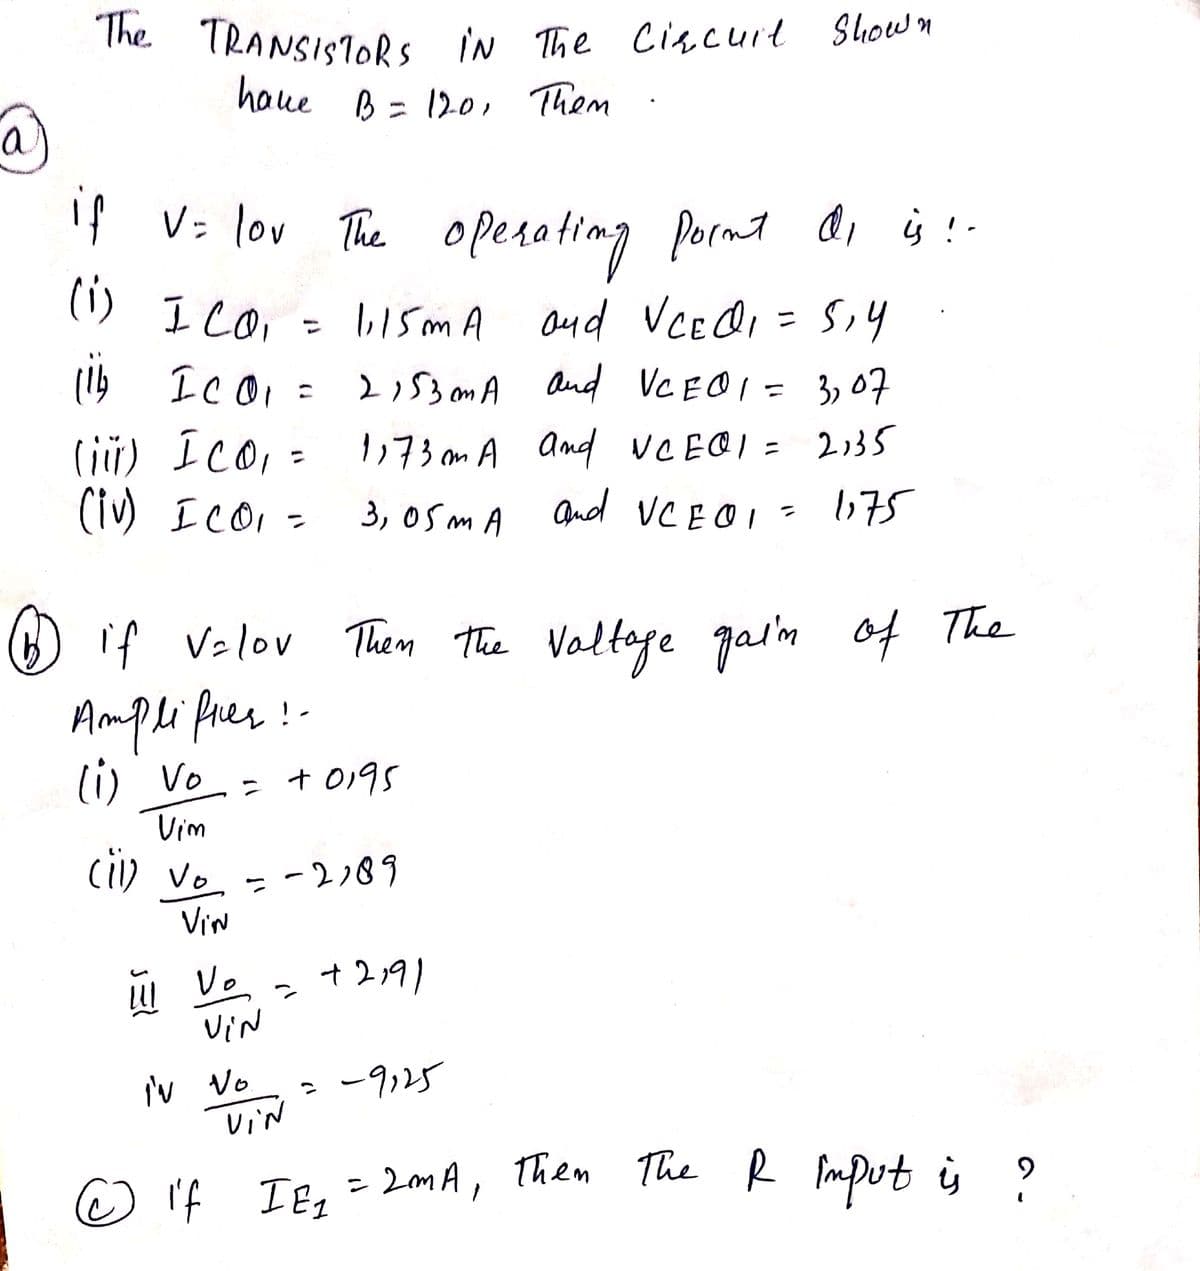 The TRANSISTORS iN The Circuit Shown
have B = 120, Them .
a
if V= lov The operating Point Q1 is :-
(i) ICQ1 = 1,15mA and VCEQ1 = 5,4
(ii) ICQ1 = 2,53mA and VCEQ1 = 3,07
(iii) ICQ1 = 1,73mA and VCEQ1 = 2,35
(iv) ICQ1 = 3,05mA and VCEQ1 = 1,75
b if V=lov Then the Valtage gain of The
Amplifier :-
(i) Vo/Vim = +0,95
(ii) Vo/ViN = -2,89
iii Vo/ViN = +2,91
iv Vo/ViN = -9,25
c if IE1 = 2mA, Then The R imput is ?